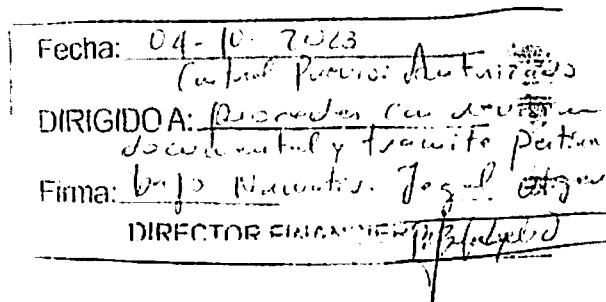 Fecha: 04-10-2023
Control Previo: Autorizado
DIRIGIDO A: proceder con revisión
documental y trámite pertinen
Firma: bajo Normativa Legal
DIRECTOR FINANCIERO